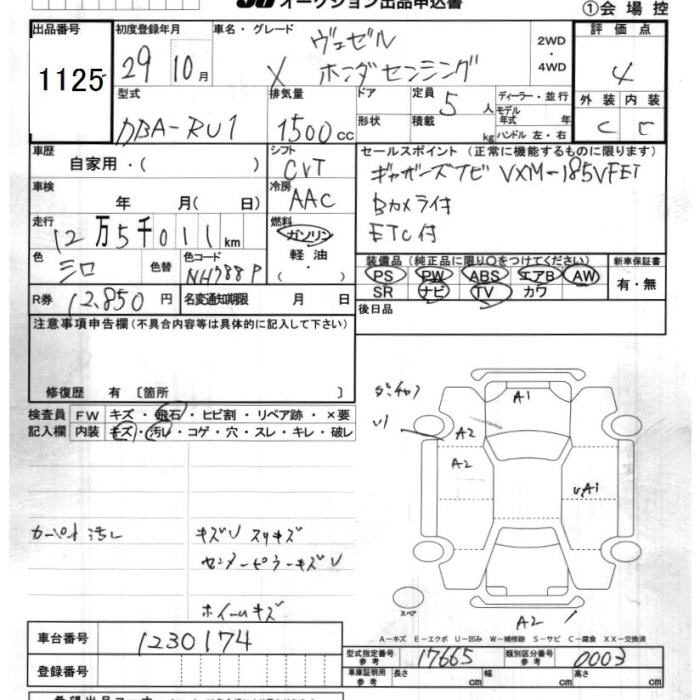 オークション出品申込書
①会場控
出品番号
1125
初度登録年月
29 10月
車名・グレード
ヴェゼル
X ホンダセンシング
2WD
・
4WD
評価点
4
型式
DBA-RU1
排気量
1500cc
ドア
形状
定員
5人
積載
kg
ディーラー・並行
モデル
年式 年
ハンドル 左・右
外装 内装
C C
車歴
自家用・( )
シフト
CVT
セールスポイント (正常に機能するものに限ります)
ギャザーズナビ VXM-185VFEI
Bカメラ付
ETC付
車検
年 月( 日)
冷房
AAC
走行
12万5千011km
燃料
ガソリン
軽油
・
( )
色
シロ
色替
色コード
NH788P
装備品 (純正品に限り○をつけてください)
PS PW ABS エアB AW
SR ナビ TV カワ
新車保証書
有・無
R券 12,850円
名変通知期限 月 日
後日品
注意事項申告欄 (不具合内容等は具体的に記入して下さい)
修復歴 有 〔箇所 〕
検査員 FW キズ・飛石・ヒビ割・リペア跡・×要
記入欄 内装 キズ・汚レ・コゲ・穴・スレ・キレ・破レ
A1
A2
A2
A1
A2
スペア
カーペット汚レ
キズU スリキズ
センターピラーキズU
ホイールキズ
A-キズ E-エクボ U-凹み W-補修跡 S-サビ C-腐食 XX-交換済
車台番号 1230174
登録番号
型式指定番号
参考
17665
類別区分番号
参考
0003
車庫証明用
参考
長さ cm 幅 cm 高さ cm